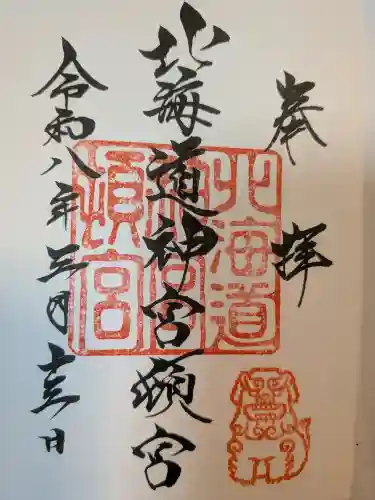 奉拝
北海道神宮頓宮
北海道
神宮
頓宮
令和八年三月十三日